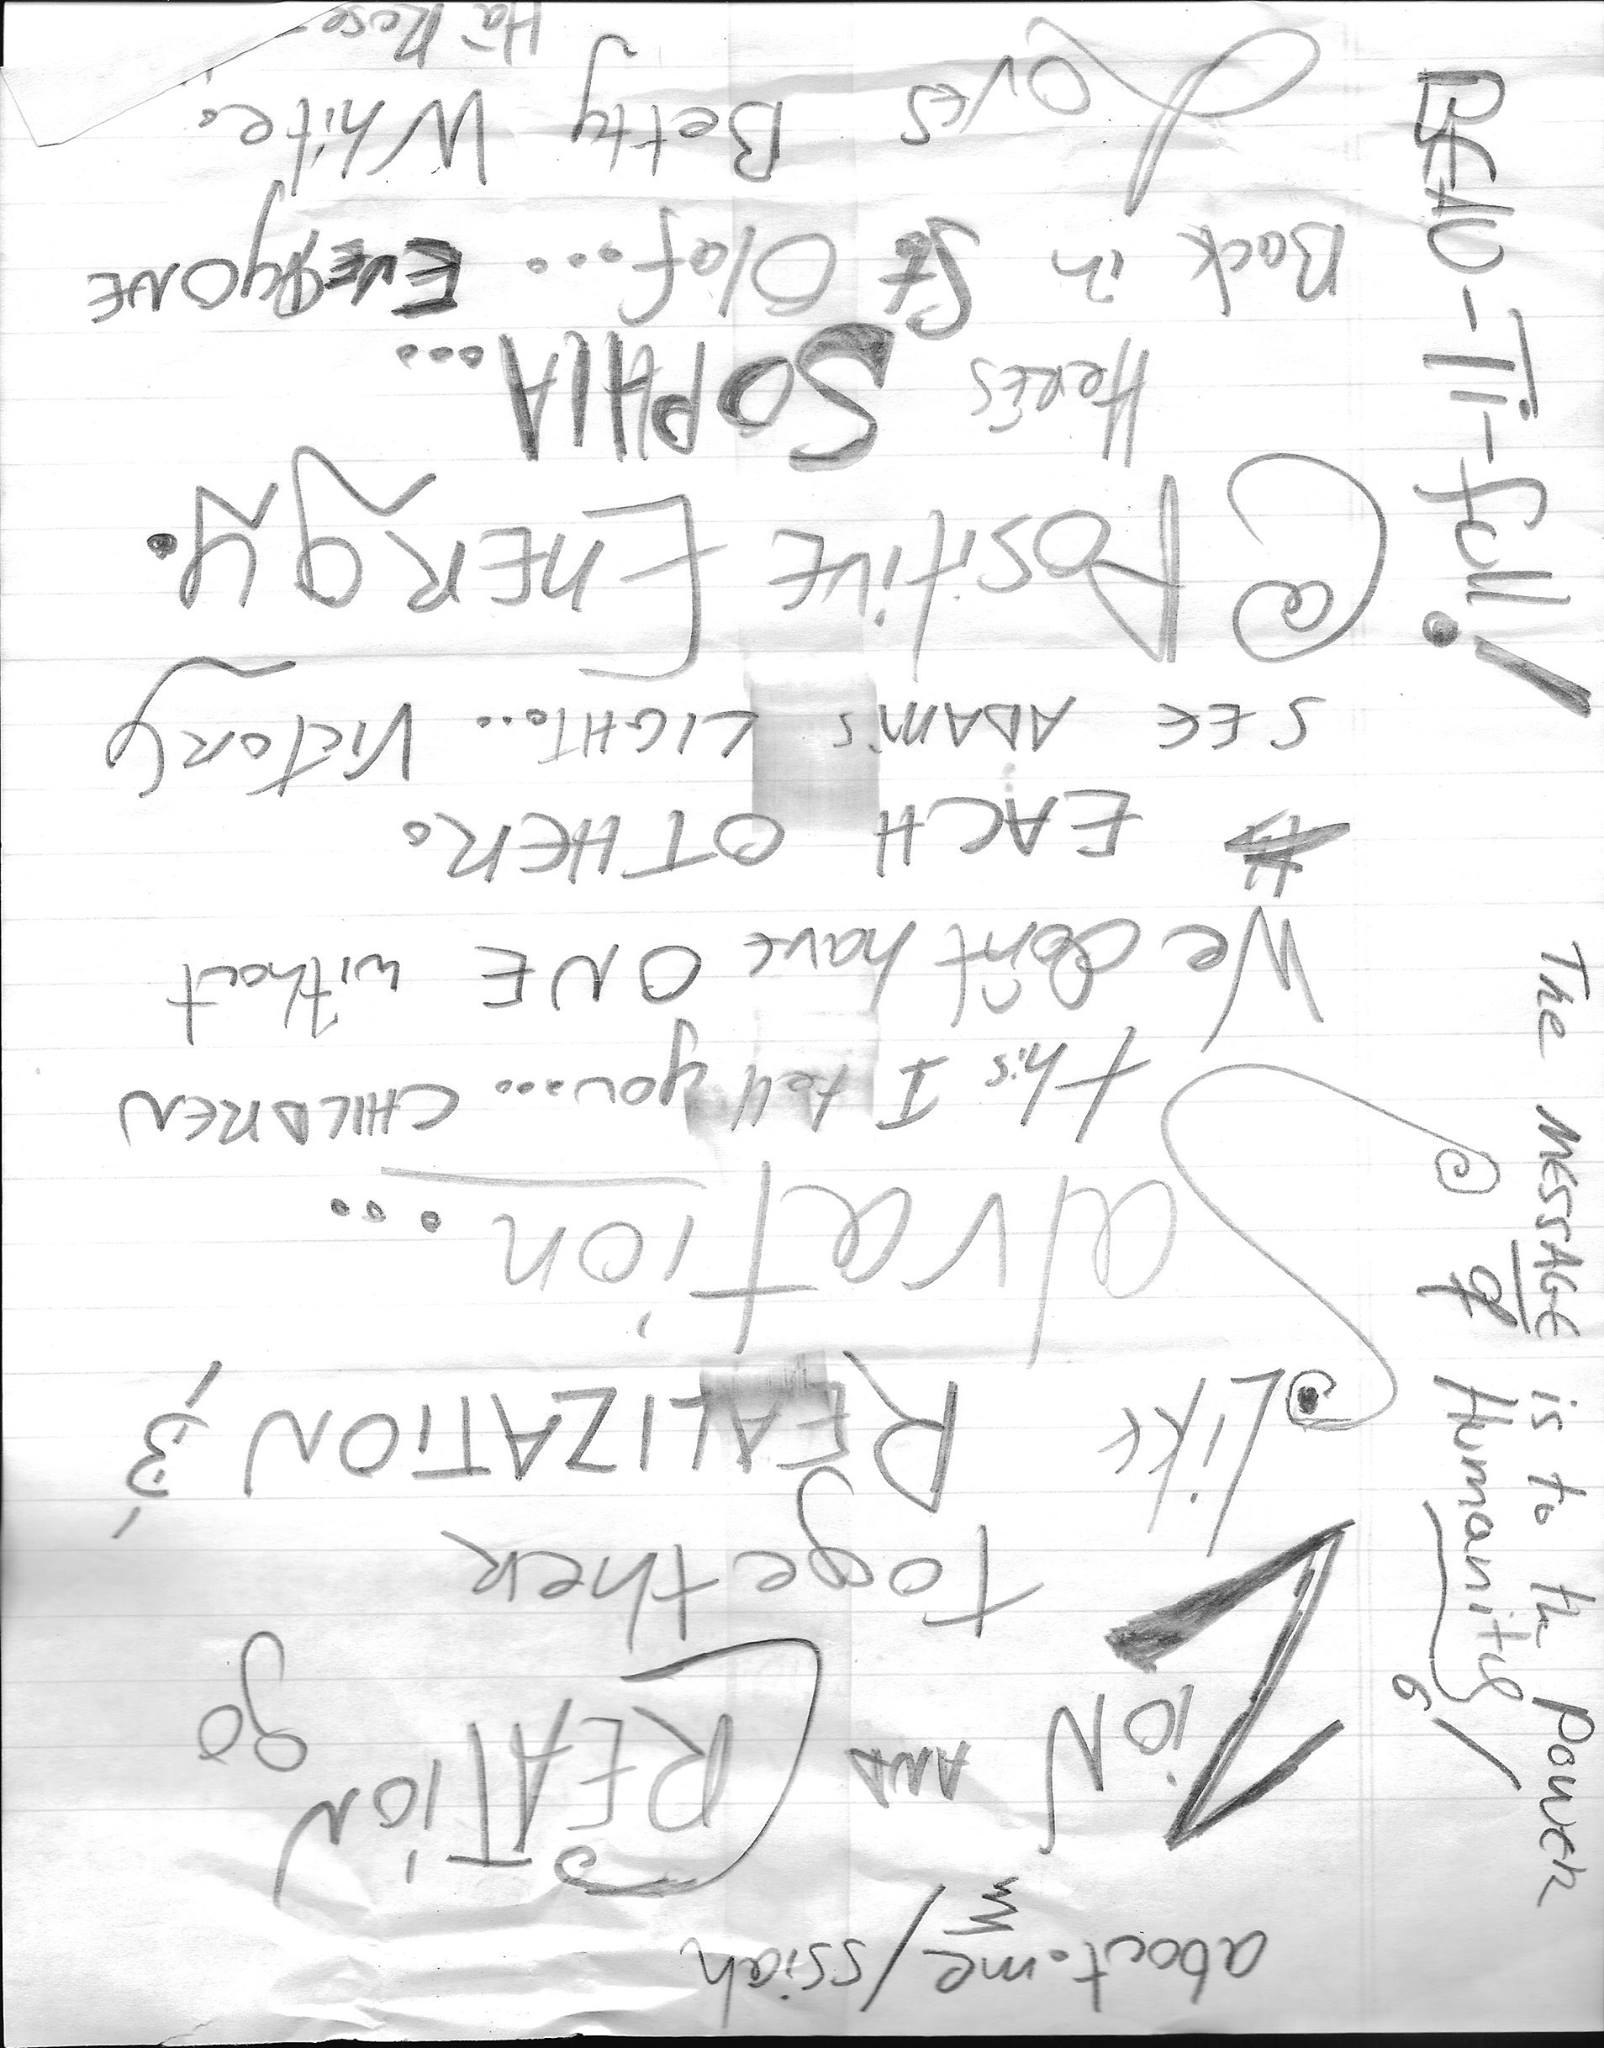 about.me/ssiah
Zion AND CREATION go
together
Like REALIZATION &
Salvation...
this I tell you... CHILDREN
We don't have ONE without
EACH OTHER.
SEE ADAM'S LIGHT... Victory
@ Positive Energy.
HERE'S SOPHIA...
Back in St Olaf... EVERYONE
Loves Betty White.
Ha Rose
The MESSAGE is to the Power
of Humanity
BEAU-Ti-full!